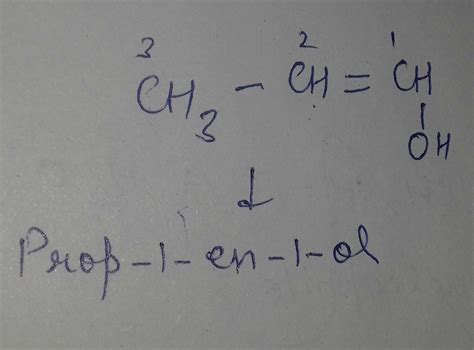 3 2 1
CH3 - CH = CH
OH
Prop-1-en-1-ol